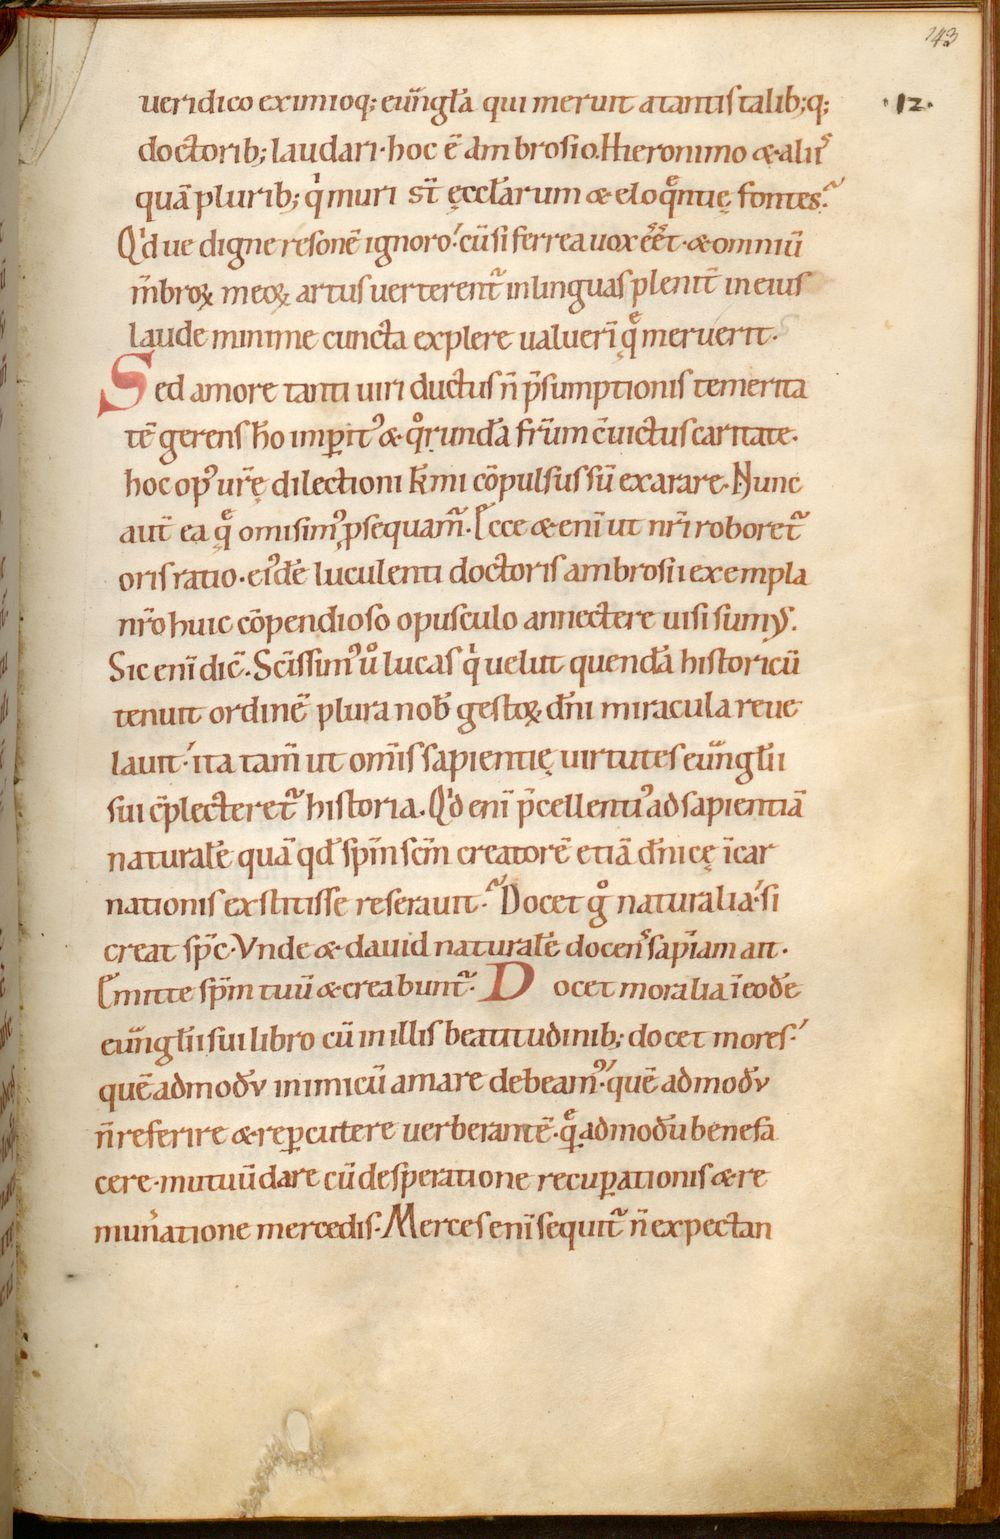 143
ueridico eximioq; euu̅gl̅a qui meruit a tantis talib;q; ·12·
doctorib; laudari· hoc e̅ ambrosio. Hieronimo & aliis
qua̅ plurib; qi muri st̅ ęccl̅arum & eloqe̅ntię fontes.
Qd ue digne resone̅ ignoro. cu̅ si ferrea uox e̅e̅t· & omniu̅
m̅broꝝ meoꝝ artus uerterent᷑ in linguas plenit̅ in eius
laude minime cuncta explere ualueri̅ qę meruerit·
Sed amore tanti uiri ductus n̅ p̅sumptionis temerita
te̅ gerens h̅o imꝑitꝰ & qorunda̅ fr̅um c̅uictus caritate·
hoc opꝰ ur̅ę dilectioni k̅mi co̅pulsus su̅ exarare· Nunc
aut̅ ea qę omisimꝰ ꝓsequam᷑. Ecce & eni̅ ut nr̅i roboret᷑
oris ratio· eiꝰde̅ luculenti doctoris ambrosii exempla
nr̅o huic co̅pendioso opusculo annectere uisi sumus.
Sic eni̅ dic̅. Sc̅issimꝰ uo lucas qi uelut quenda̅ historicu̅
tenuit ordine̅ plura nob̅ gestoꝝ dn̅i miracula reue
lauit· ita tam̅ ut om̅is sapientię uirtutes euu̅gl̅ii
sui c̅plecteret᷑ historia. Qd eni̅ p̅cellentiꝰ ad sapientia̅
naturale̅ qua̅ qd̅ sp̅m sc̅m creatore̅ etia̅ dn̅icę i̅car
nationis exstitisse reserauit. Docet go naturalia· si
creat sp̅c· Vnde & dauid naturale̅ docens sapi̅am ait·
Emitte sp̅m tuu̅ & creabunt᷑. Docet moralia i̅ eode̅
euu̅gl̅ii sui libro cu̅ in illis beatitudinib; docet mores·
que̅admodu̅ inimicu̅ amare debeamꝰ· que̅admodu̅
n̅ referire & reꝑcutere uerberante̅· qe̅admodu̅ benefa
cere· mutuu̅ dare cu̅ desperatione recuꝑationis & re
mun̅atione mercedis· Merces eni̅ sequit᷑ n̅ expectan